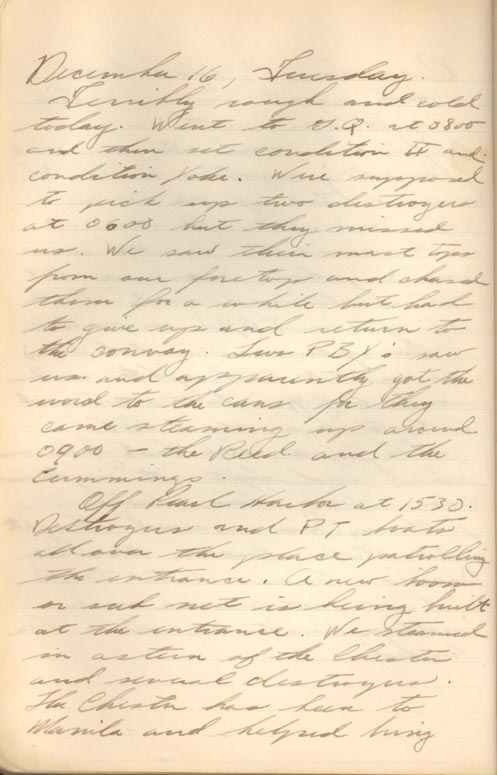 December 16, Tuesday.
Terribly rough and cold
today. Went to G.Q. at 0800
and then set condition II and
condition Yoke. Were supposed
to pick up two destroyers
at 0600 but they missed
us. We saw their mast tops
from our foretop and chased
them for a while but had
to give up and return to
the convoy. Two PBY's saw
us and apparently got the
word to the cans for they
came steaming up around
0900 - the Reid and the
Cummings.
Off Pearl Harbor at 1530.
Destroyers and PT boats
all over the place patrolling
the entrance. A new boom
or sub net is being built
at the entrance. We steamed
in astern of the Chester
and several destroyers.
The Chester has been to
Manila and helped bring